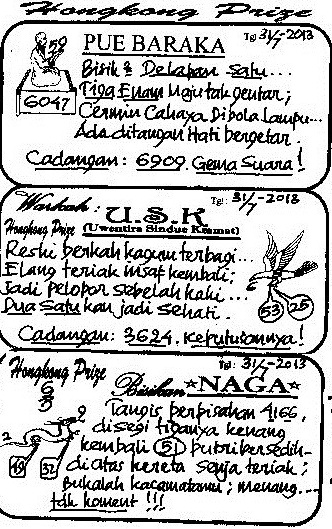 Hongkong Prize
PUE BARAKA
Tgl 31/7-2013
59
6047
Bisik 2 Delapan Satu...
Tiga Enam Maju tak gentar;
Cermin Cahaya Di bola Lampu...
Ada ditangan Hati bergetar.
Cadangan: 6909. Gema Suara!
Warkah:
U.S.K
Tgl: 31/7-2013
Hongkong Prize
(Uwentira Sindue Kramat)
Reski berkah kagum terbagi...
Elang teriak insaf kembali;
Jadi Pelopor sebelah kaki...
Dua Satu kau jadi sehati.
53 25
Cadangan: 3624. Keputusannya!
Hongkong Prize
Tgl: 31/7-2013
Bisikan ★NAGA★
6
5
Tangis perpisahan 4166,
disegi tiganya kenang
kembali (51) putri bersedih-
diatas kereta senja teriak;
Bukalah kacamatamu; menang...
tdk koment !!!
2
49 32